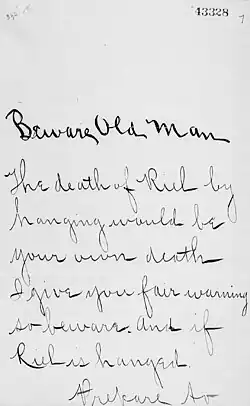 43328
7
Beware, Old Man
The death of Riel by
hanging would be
your own death
I give you fair warning
so beware. And if
Riel is hanged.
Prepare to